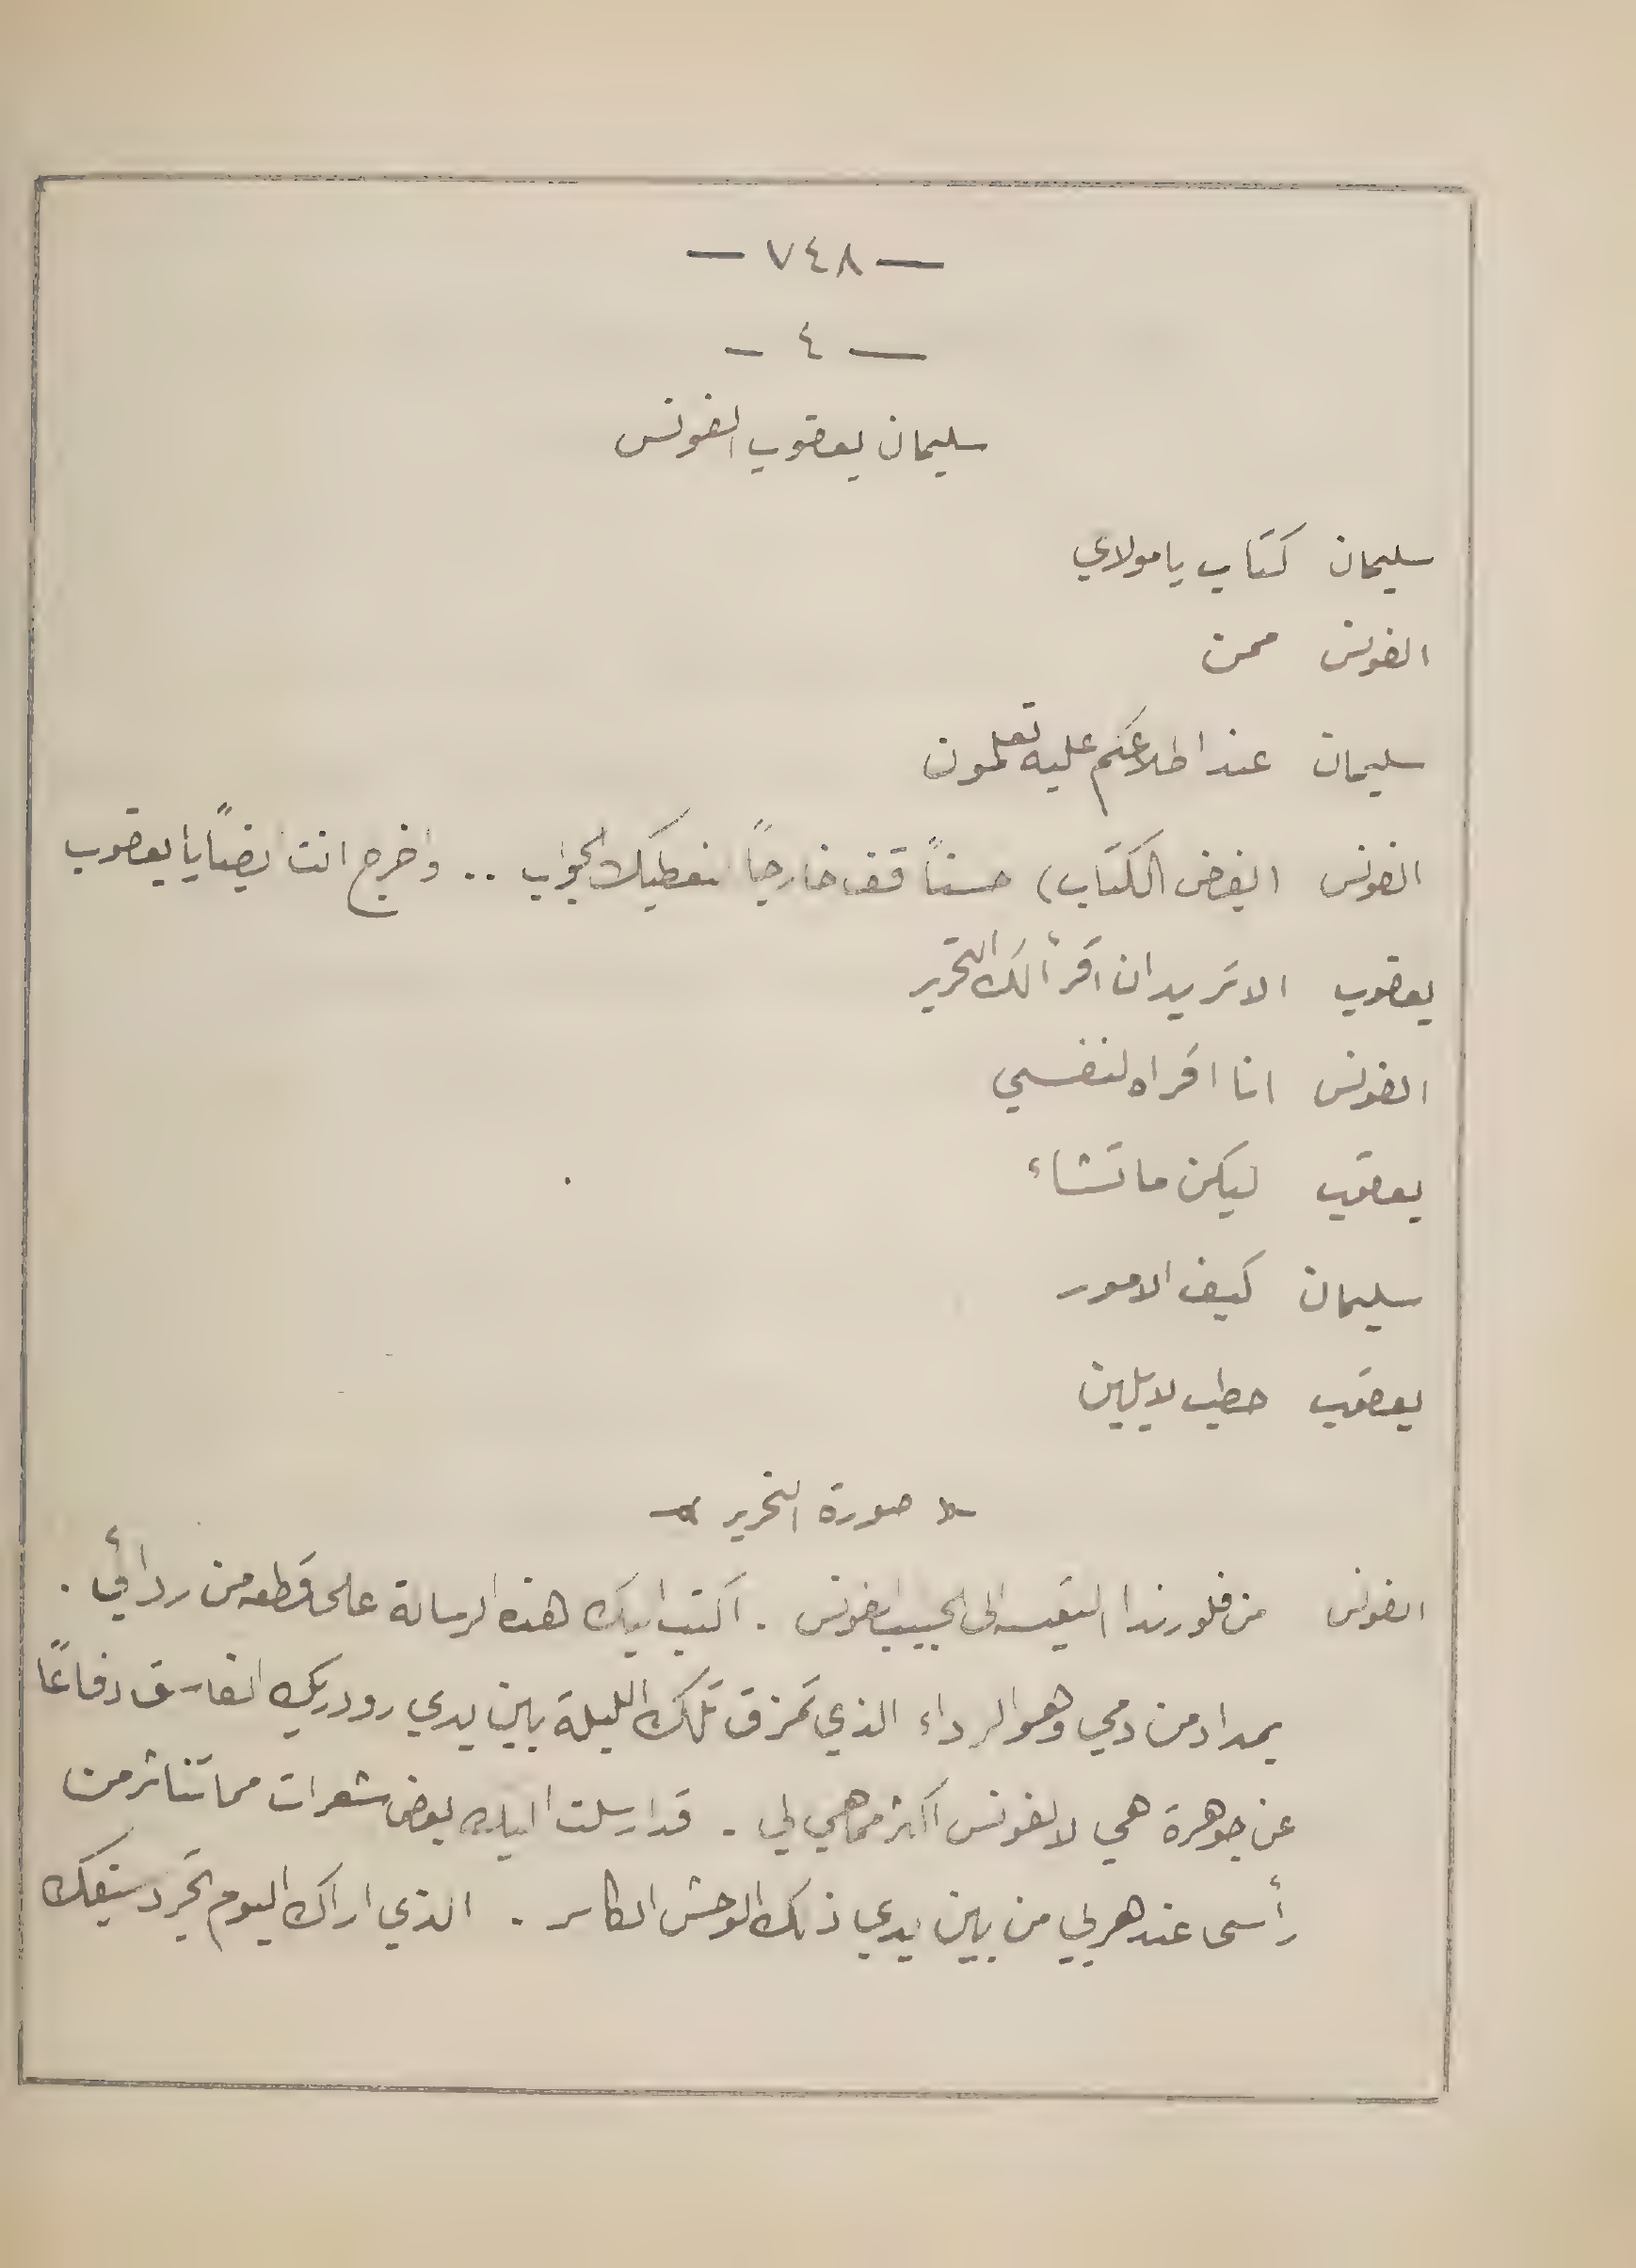 — ٧٤٨ —
— ٤ —
سليمان يعقوب الفونس
سليمان كتاب يا مولاي
الفونس ممن
سليمان عند اطلاعكم عليه تعلمون
الفونس (يفض الكتاب) حسناً قف خارجاً نعطيك الجواب .. واخرج انت ايضاً يا يعقوب
يعقوب الا تريد ان اقرأ لك التحرير
الفونس انا اقراه لنفسي
يعقوب ليكن ما تشاء
سليمان كيف الامور
يعقوب حطب لا يلين
صورة التحرير
الفونس من فلورندا التعيسه الى الحبيب الفونس . اكتب اليك هذه الرسالة على قطعه من ردائي .
بمداد من دمي وهو الرداء الذي تمزق تلك الليلة بين يدي رودريك الفاسق دفاعًا
عن جوهرة هي لالفونس اكثر مما هي لي . قد ارسلت اليك بعض شعرات مما تناثر من
رأسى عند هربي من بين يدي ذلك الوحش الكاسر . الذي اراك اليوم تجرد سيفك